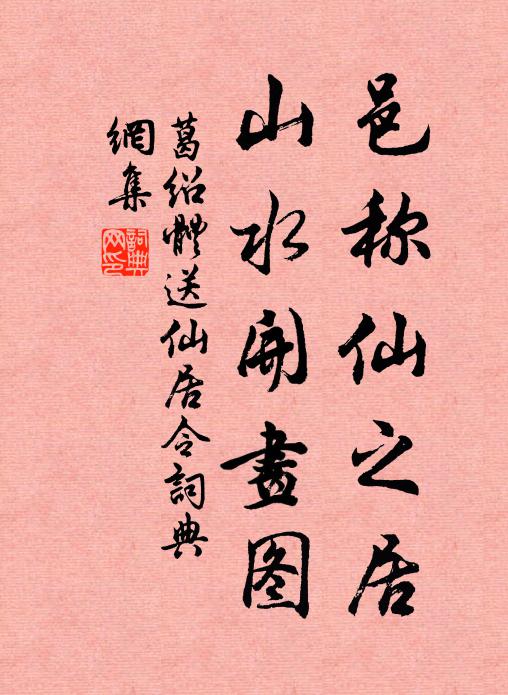 邑称仙之居
山水开畫图
葛绍體送仙居令詞典
網集
詞典網印